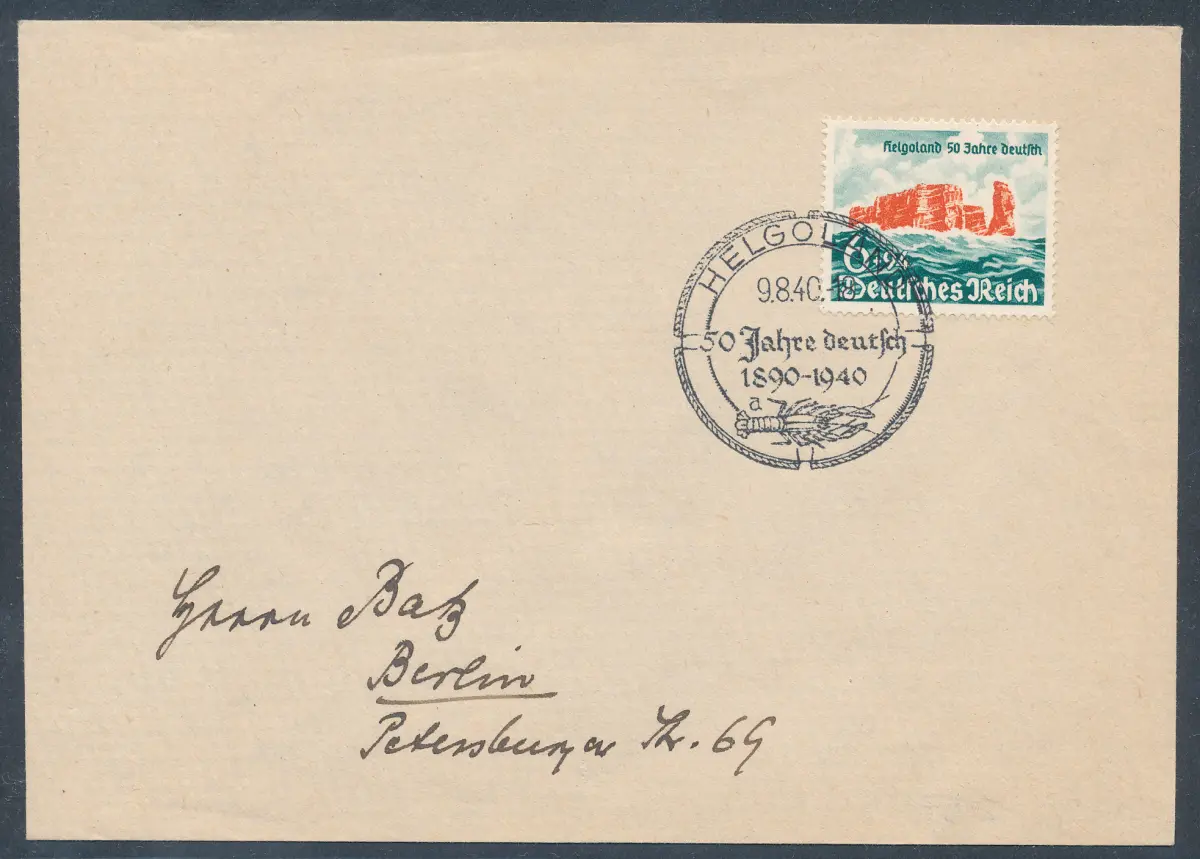 Helgoland 50 Jahre deutsch
6+94
Deutsches Reich
HELGOLAND
9.8.40.-18
50 Jahre deutsch
1890-1940
a
Herrn Batz
Berlin
Petersburger Str. 69